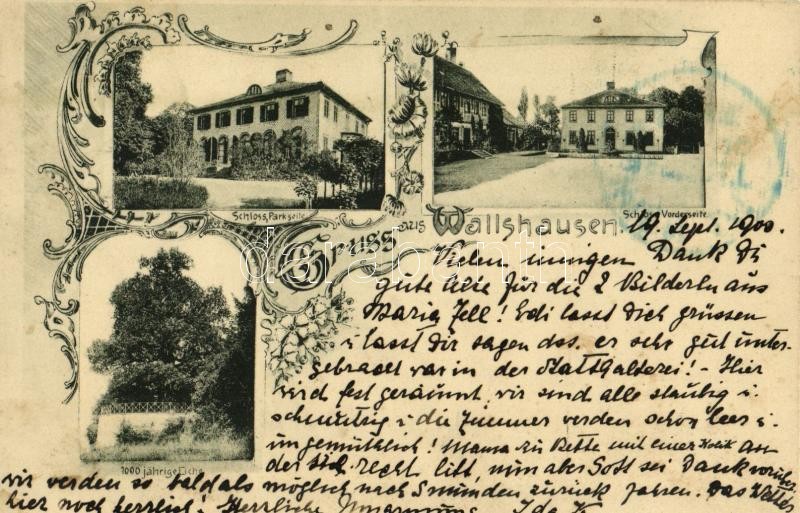 Schloss, Parkseite
Schloss Vorderseite
Gruss aus Wallshausen.
1000 jährige Eiche
19. Sept. 1900.
Vielen innigen Dank Du
gute Alte für die 2 Bilderln aus
Maria Zell! Edi lasst Dich grüssen
i lasst Dir sagen dss. er sehr gut unter-
gebracht war in der Statthalterei! - Hier
wird fest geräumt, wir sind alle staubig i.
schmutzig i die Zimmer werden schon leer i.
ungemüthlich! Mama zu Bette mit einer Kolik an
der Sie recht litt, nun aber Gott sei Dank vorüber.
wir werden so bald als möglich nach Gmünden zurück fahren. Das Wetter
hier noch herrlich! Herzliche Umarmung Ida
derabanth